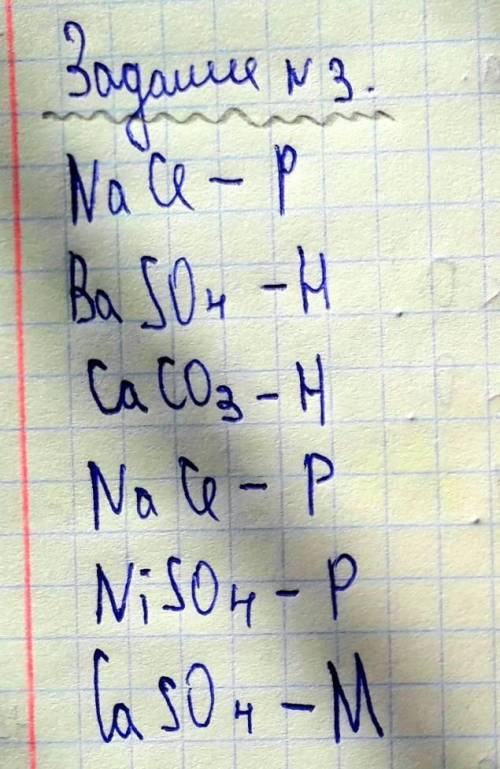 Задание №3.
NaCl - Р
BaSO4 - Н
CaCO3 - Н
NaCl - Р
NiSO4 - Р
CaSO4 - М